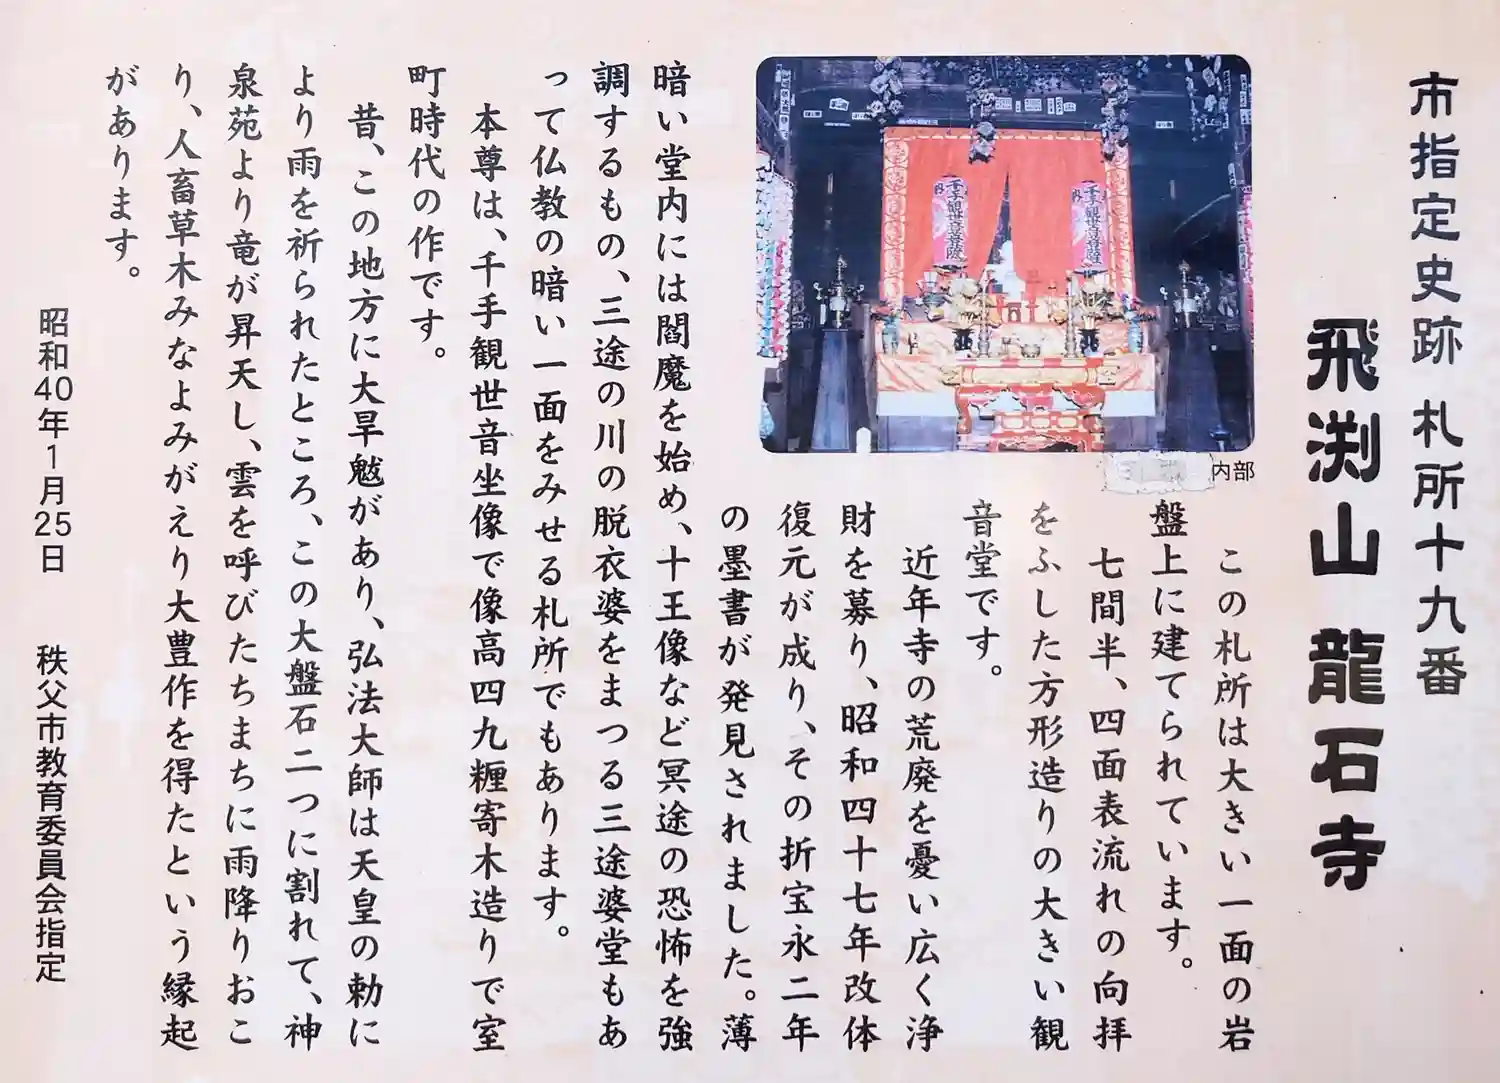 市指定史跡 札所十九番
飛渕山 龍石寺
内部
この札所は大きい一面の岩
盤上に建てられています。
七間半、四面表流れの向拝
をふした方形造りの大きい観
音堂です。
近年寺の荒廃を憂い広く浄
財を募り、昭和四十七年改体
復元が成り、その折宝永二年
の墨書が発見されました。薄
暗い堂内には閻魔を始め、十王像など冥途の恐怖を強
調するもの、三途の川の脱衣婆をまつる三途婆堂もあ
って仏教の暗い一面をみせる札所でもあります。
本尊は、千手観世音坐像で像高四九糎寄木造りで室
町時代の作です。
昔、この地方に大旱魃があり、弘法大師は天皇の勅に
より雨を祈られたところ、この大盤石二つに割れて、神
泉苑より竜が昇天し、雲を呼びたちまちに雨降りおこ
り、人畜草木みなよみがえり大豊作を得たという縁起
があります。
昭和40年1月25日 秩父市教育委員会指定